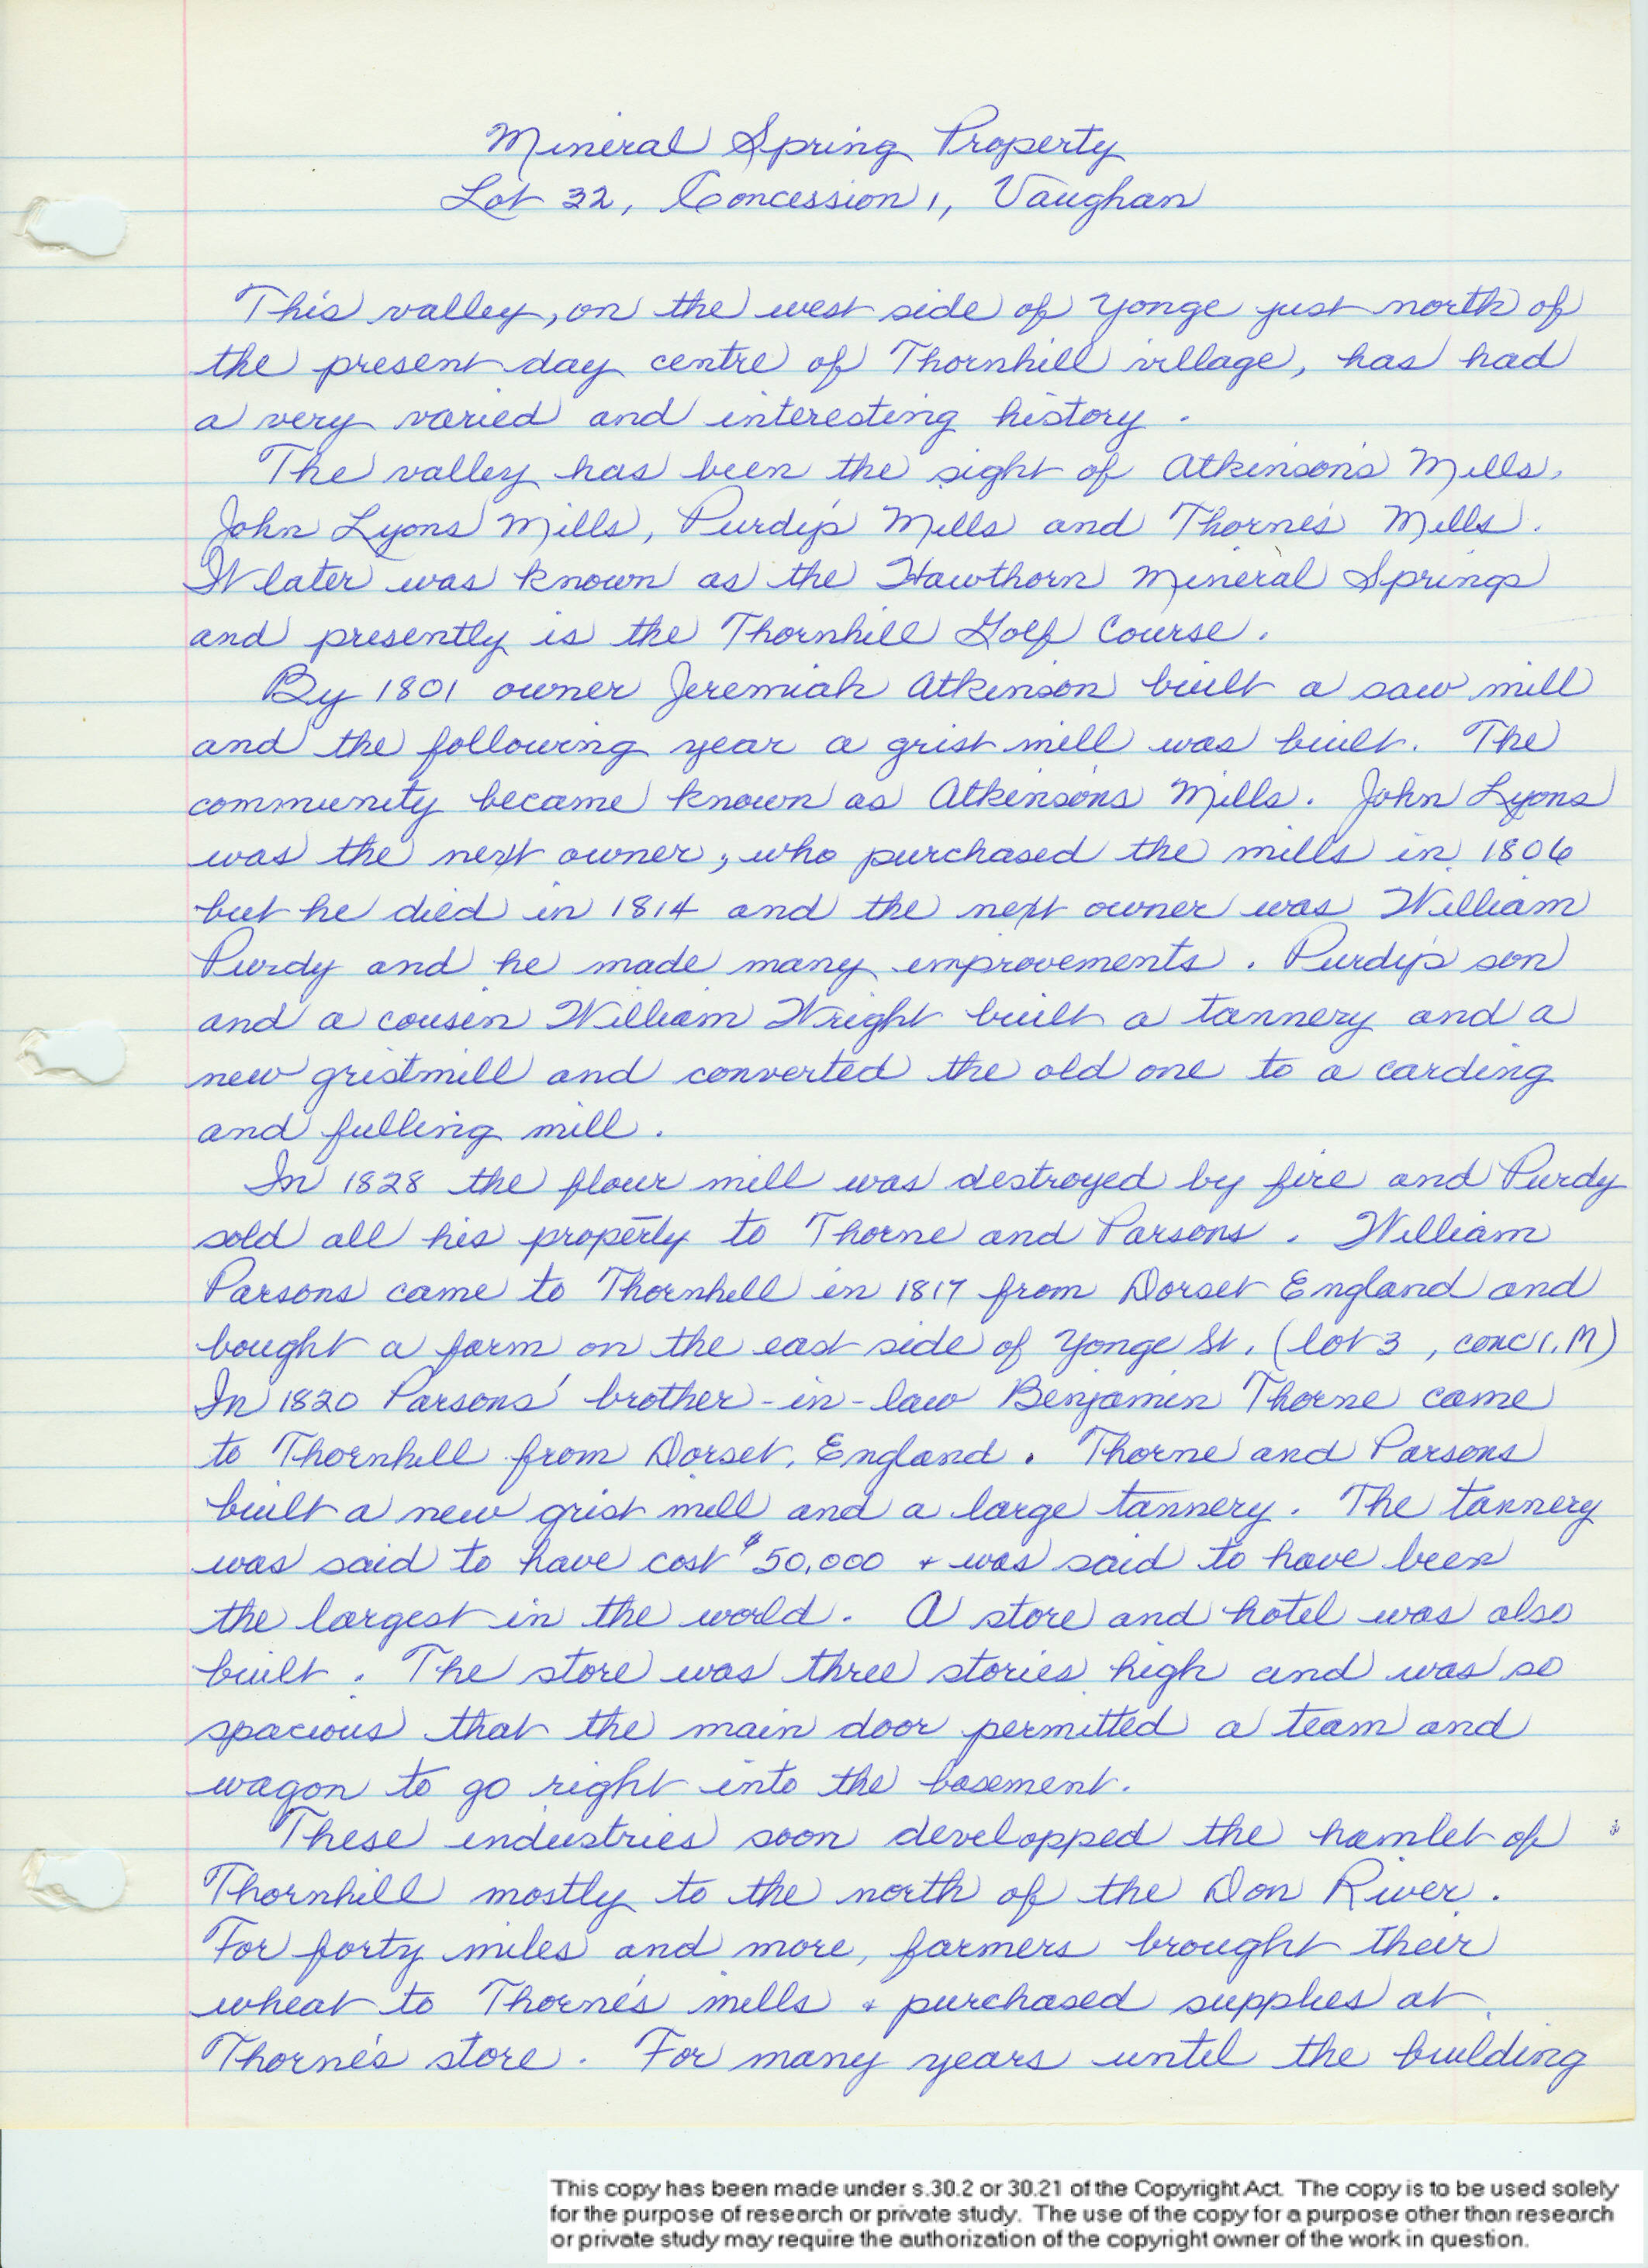 Mineral Spring Property
Lot 32, Concession 1, Vaughan
This valley, on the west side of Yonge just north of
the present day centre of Thornhill village, has had
a very varied and interesting history.
The valley has been the sight of Atkinson's Mills,
John Lyons Mills, Purdy's Mills and Thorne's Mills.
It later was known as the Hawthorn Mineral Springs
and presently is the Thornhill Golf Course.
By 1801 owner Jeremiah Atkinson built a saw mill
and the following year a grist mill was built. The
community became known as Atkinson's Mills. John Lyons
was the next owner, who purchased the mills in 1806
but he died in 1814 and the next owner was William
Purdy and he made many improvements. Purdy's son
and a cousin William Wright built a tannery and a
new gristmill and converted the old one to a carding
and fulling mill.
In 1828 the flour mill was destroyed by fire and Purdy
sold all his property to Thorne and Parsons. William
Parsons came to Thornhill in 1817 from Dorset England and
bought a farm on the east side of Yonge St. (lot 3, conc 1, M)
In 1820 Parsons' brother-in-law Benjamin Thorne came
to Thornhill from Dorset, England. Thorne and Parsons
built a new grist mill and a large tannery. The tannery
was said to have cost $50,000 + was said to have been
the largest in the world. A store and hotel was also
built. The store was three stories high and was so
spacious that the main door permitted a team and
wagon to go right into the basement.
These industries soon developped the hamlet of
Thornhill mostly to the north of the Don River.
For forty miles and more, farmers brought their
wheat to Thorne's mills + purchased supplies at
Thorne's store. For many years until the building
This copy has been made under s.30.2 or 30.21 of the Copyright Act. The copy is to be used solely
for the purpose of research or private study. The use of the copy for a purpose other than research
or private study may require the authorization of the copyright owner of the work in question.